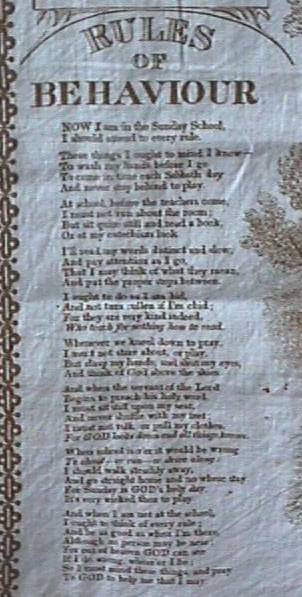 RULES
OF
BEHAVIOUR
NOW I am in the Sunday School,
I should attend to every rule.
These things I ought to mind I know
To wash my hands before I go
To come in time each Sabbath day
And never stay behind to play.
At school, before the teachers come,
I must not run about the room;
But sit quite still and read a book,
Or at my catechism look.
I'll read my words distinct and slow,
And pay attention as I go,
That I may think of what they mean,
And put the proper stops between.
I ought to do as I am bid,
And not turn sullen if I'm chid;
For they are very kind indeed,
Who teach for nothing how to read.
Whenever we kneel down to pray,
I must not stare about, or play,
But clasp my hands, and shut my eyes,
And think of God above the skies.
And when the servant of the Lord
Begins to preach his holy word,
I must sit still upon my seat,
And never shuffle with my feet;
I must not talk, or pull my clothes,
For GOD looks down and all things knows.
When school is o'er it would be wrong
To shout or run along;
I should walk steadily away,
And go straight home and no where stay
For Sunday is GOD's holy day
It is very wicked then to play
And when I am not at the school,
I ought to think of every rule;
And be as good as when I'm there,
Although no person may be near;
For out of heaven GOD can see
If I do wrong, where'er I be;
So I must mind these things, and pray
To GOD to help me that I may